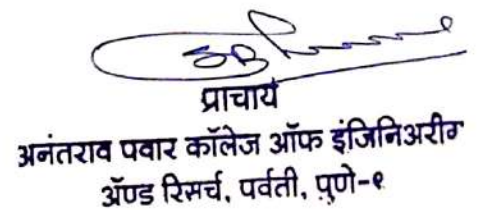 प्राचार्य
अनंतराव पवार कॉलेज ऑफ इंजिनिअरींग
ॲण्ड रिसर्च, पर्वती, पुणे-९